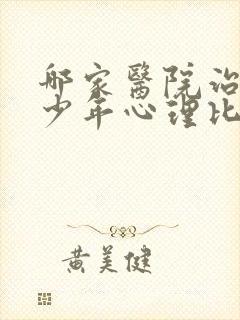 哪家醫院治
少年心理比
黄美健